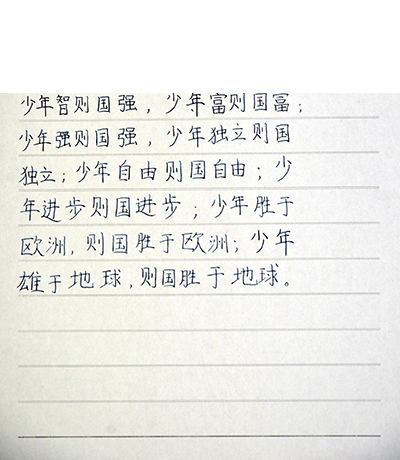 少年智则国强，少年富则国富；
少年强则国强，少年独立则国
独立；少年自由则国自由；少
年进步则国进步；少年胜于
欧洲，则国胜于欧洲；少年
雄于地球，则国胜于地球。